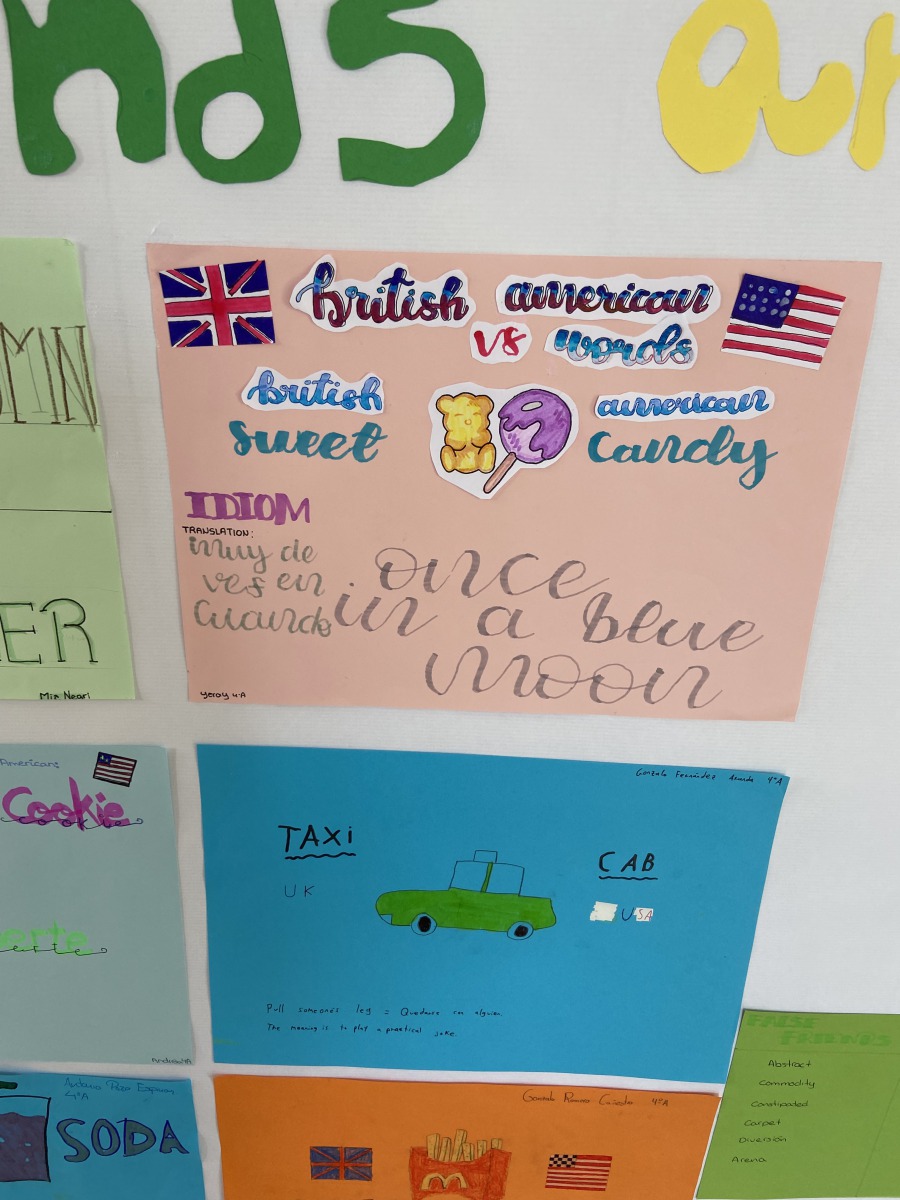 nds an
british american
vs words
british american
sweet candy
IDIOM
TRANSLATION:
muy de
ves en
cuando
once
in a blue
moon
yeray 4ºA
ER
American:
Cookie
erte
Andrea 4ªA
4ºA
TAXi
CAB
UK
USA
Pull someone's leg = Quedarse con alguien.
The meaning is to play a practical joke.
Antonio
4ºA
SODA
Gonzalo 4ºA
FALSE
FRIENDS
Abstract
Commodity
Constipaded
Carpet
Diversión
Arena